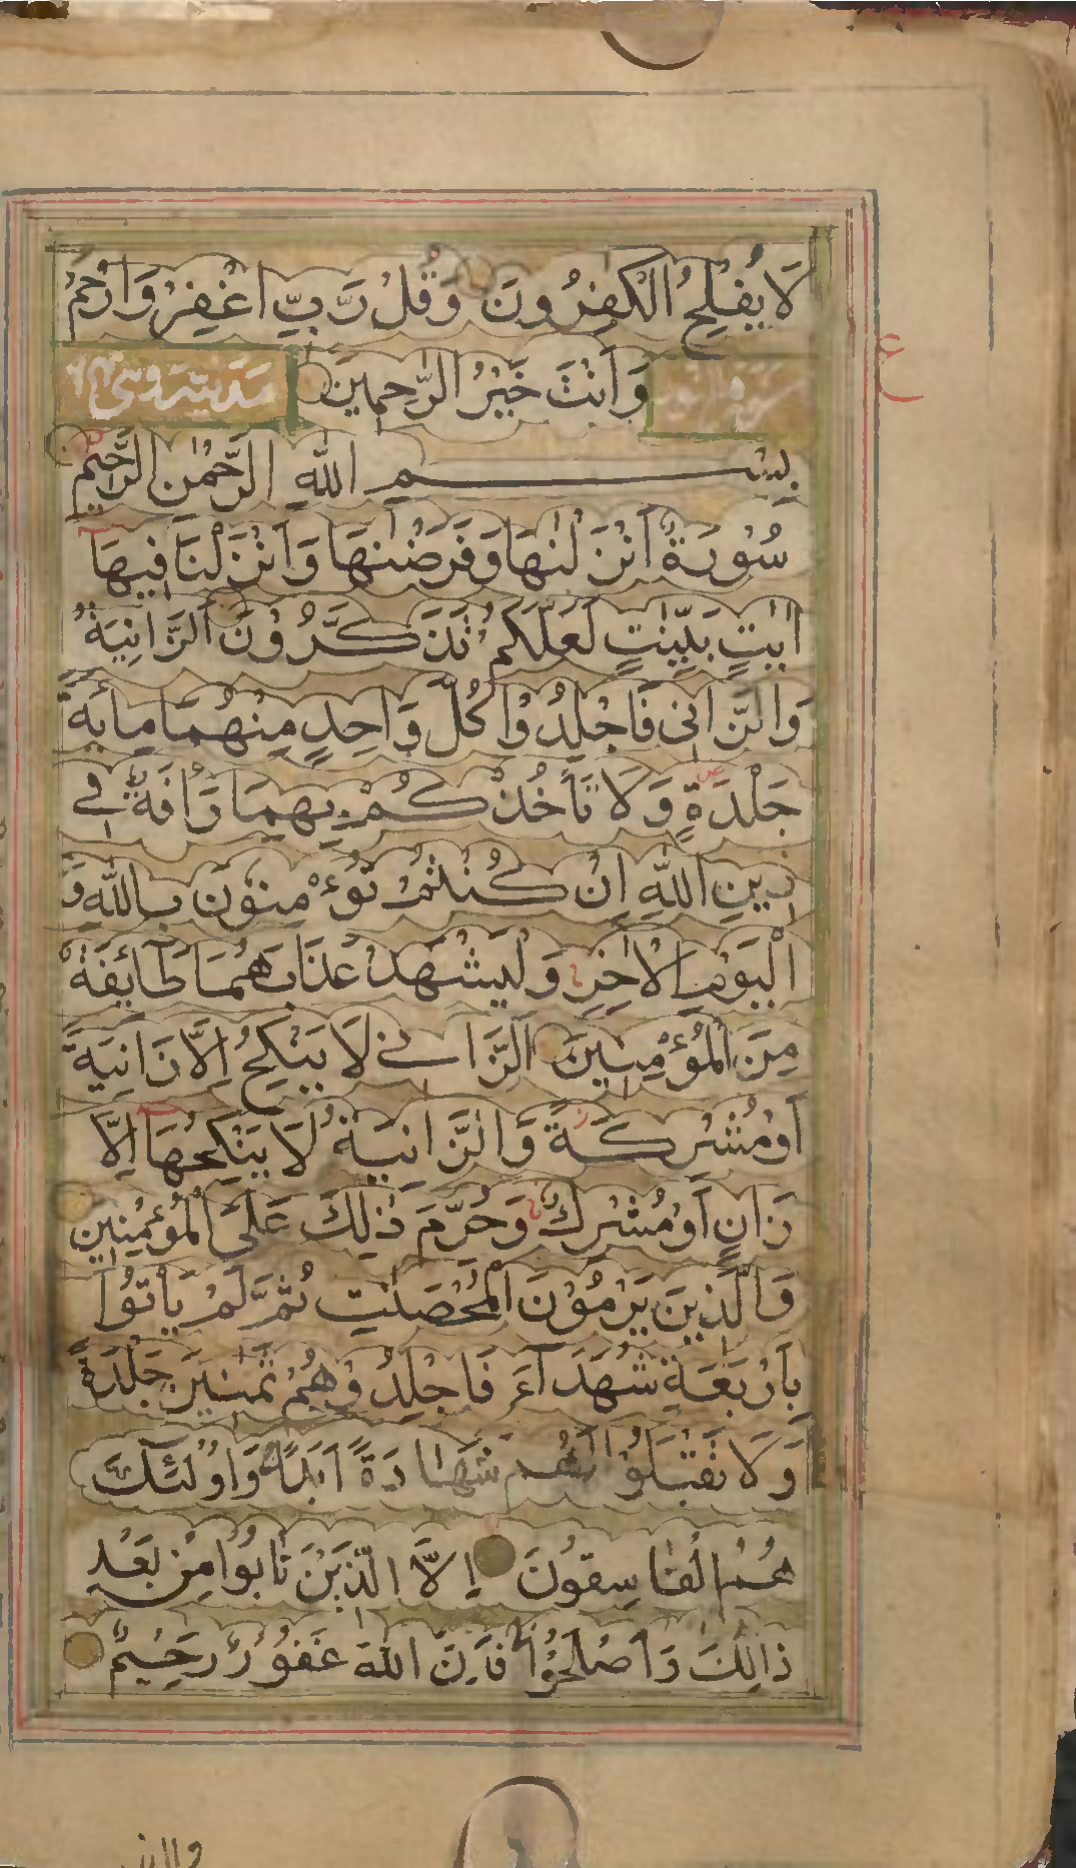 لَا يُفْلِحُ الْكٰفِرُونَ وَقُلْ رَّبِّ اغْفِرْ وَارْحَمْ
وَاَنْتَ خَيْرُ الرّٰحِمِيْنَ
بِسْمِ اللّٰهِ الرَّحْمٰنِ الرَّحِيْمِ
سُوْرَةٌ اَنْزَلْنٰهَا وَفَرَضْنٰهَا وَاَنْزَلْنَا فِيهَا
اٰيٰتٍ بَيِّنٰتٍ لَعَلَّكُمْ تَذَكَّرُوْنَ اَلزَّانِيَةُ
وَالزَّانِى فَاجْلِدُوْا كُلَّ وَاحِدٍ مِنْهُمَا مِائَةَ
جَلْدَةٍ وَلَا تَأْخُذْكُمْ بِهِمَا رَاْفَةٌ فِى
دِينِ اللّٰهِ اِنْ كُنْتُمْ تُؤْمِنُوْنَ بِاللّٰهِ وَ
الْيَوْمِ الْاٰخِرِ وَلْيَشْهَدْ عَذَابَهُمَا طَائِفَةٌ
مِنَ الْمُؤْمِنِيْنَ اَلزَّانِى لَا يَنْكِحُ اِلَّا زَانِيَةً
اَوْ مُشْرِكَةً وَالزَّانِيَةُ لَا يَنْكِحُهَا اِلَّا
زَانٍ اَوْ مُشْرِكٌ وَحُرِّمَ ذٰلِكَ عَلَى الْمُؤْمِنِيْنَ
وَالَّذِيْنَ يَرْمُوْنَ الْمُحْصَنٰتِ ثُمَّ لَمْ يَأْتُوْا
بِاَرْبَعَةِ شُهَدَآءَ فَاجْلِدُوْهُمْ ثَمٰنِيْنَ جَلْدَةً
وَلَا تَقْبَلُوْا لَهُمْ شَهَادَةً اَبَدًا وَاُولٰٓئِكَ
هُمُ الْفَاسِقُوْنَ اِلَّا الَّذِيْنَ تَابُوْا مِنْ بَعْدِ
ذَالِكَ وَاَصْلَحُوْا فَاِنَّ اللّٰهَ غَفُوْرٌ رَحِيْمٌ